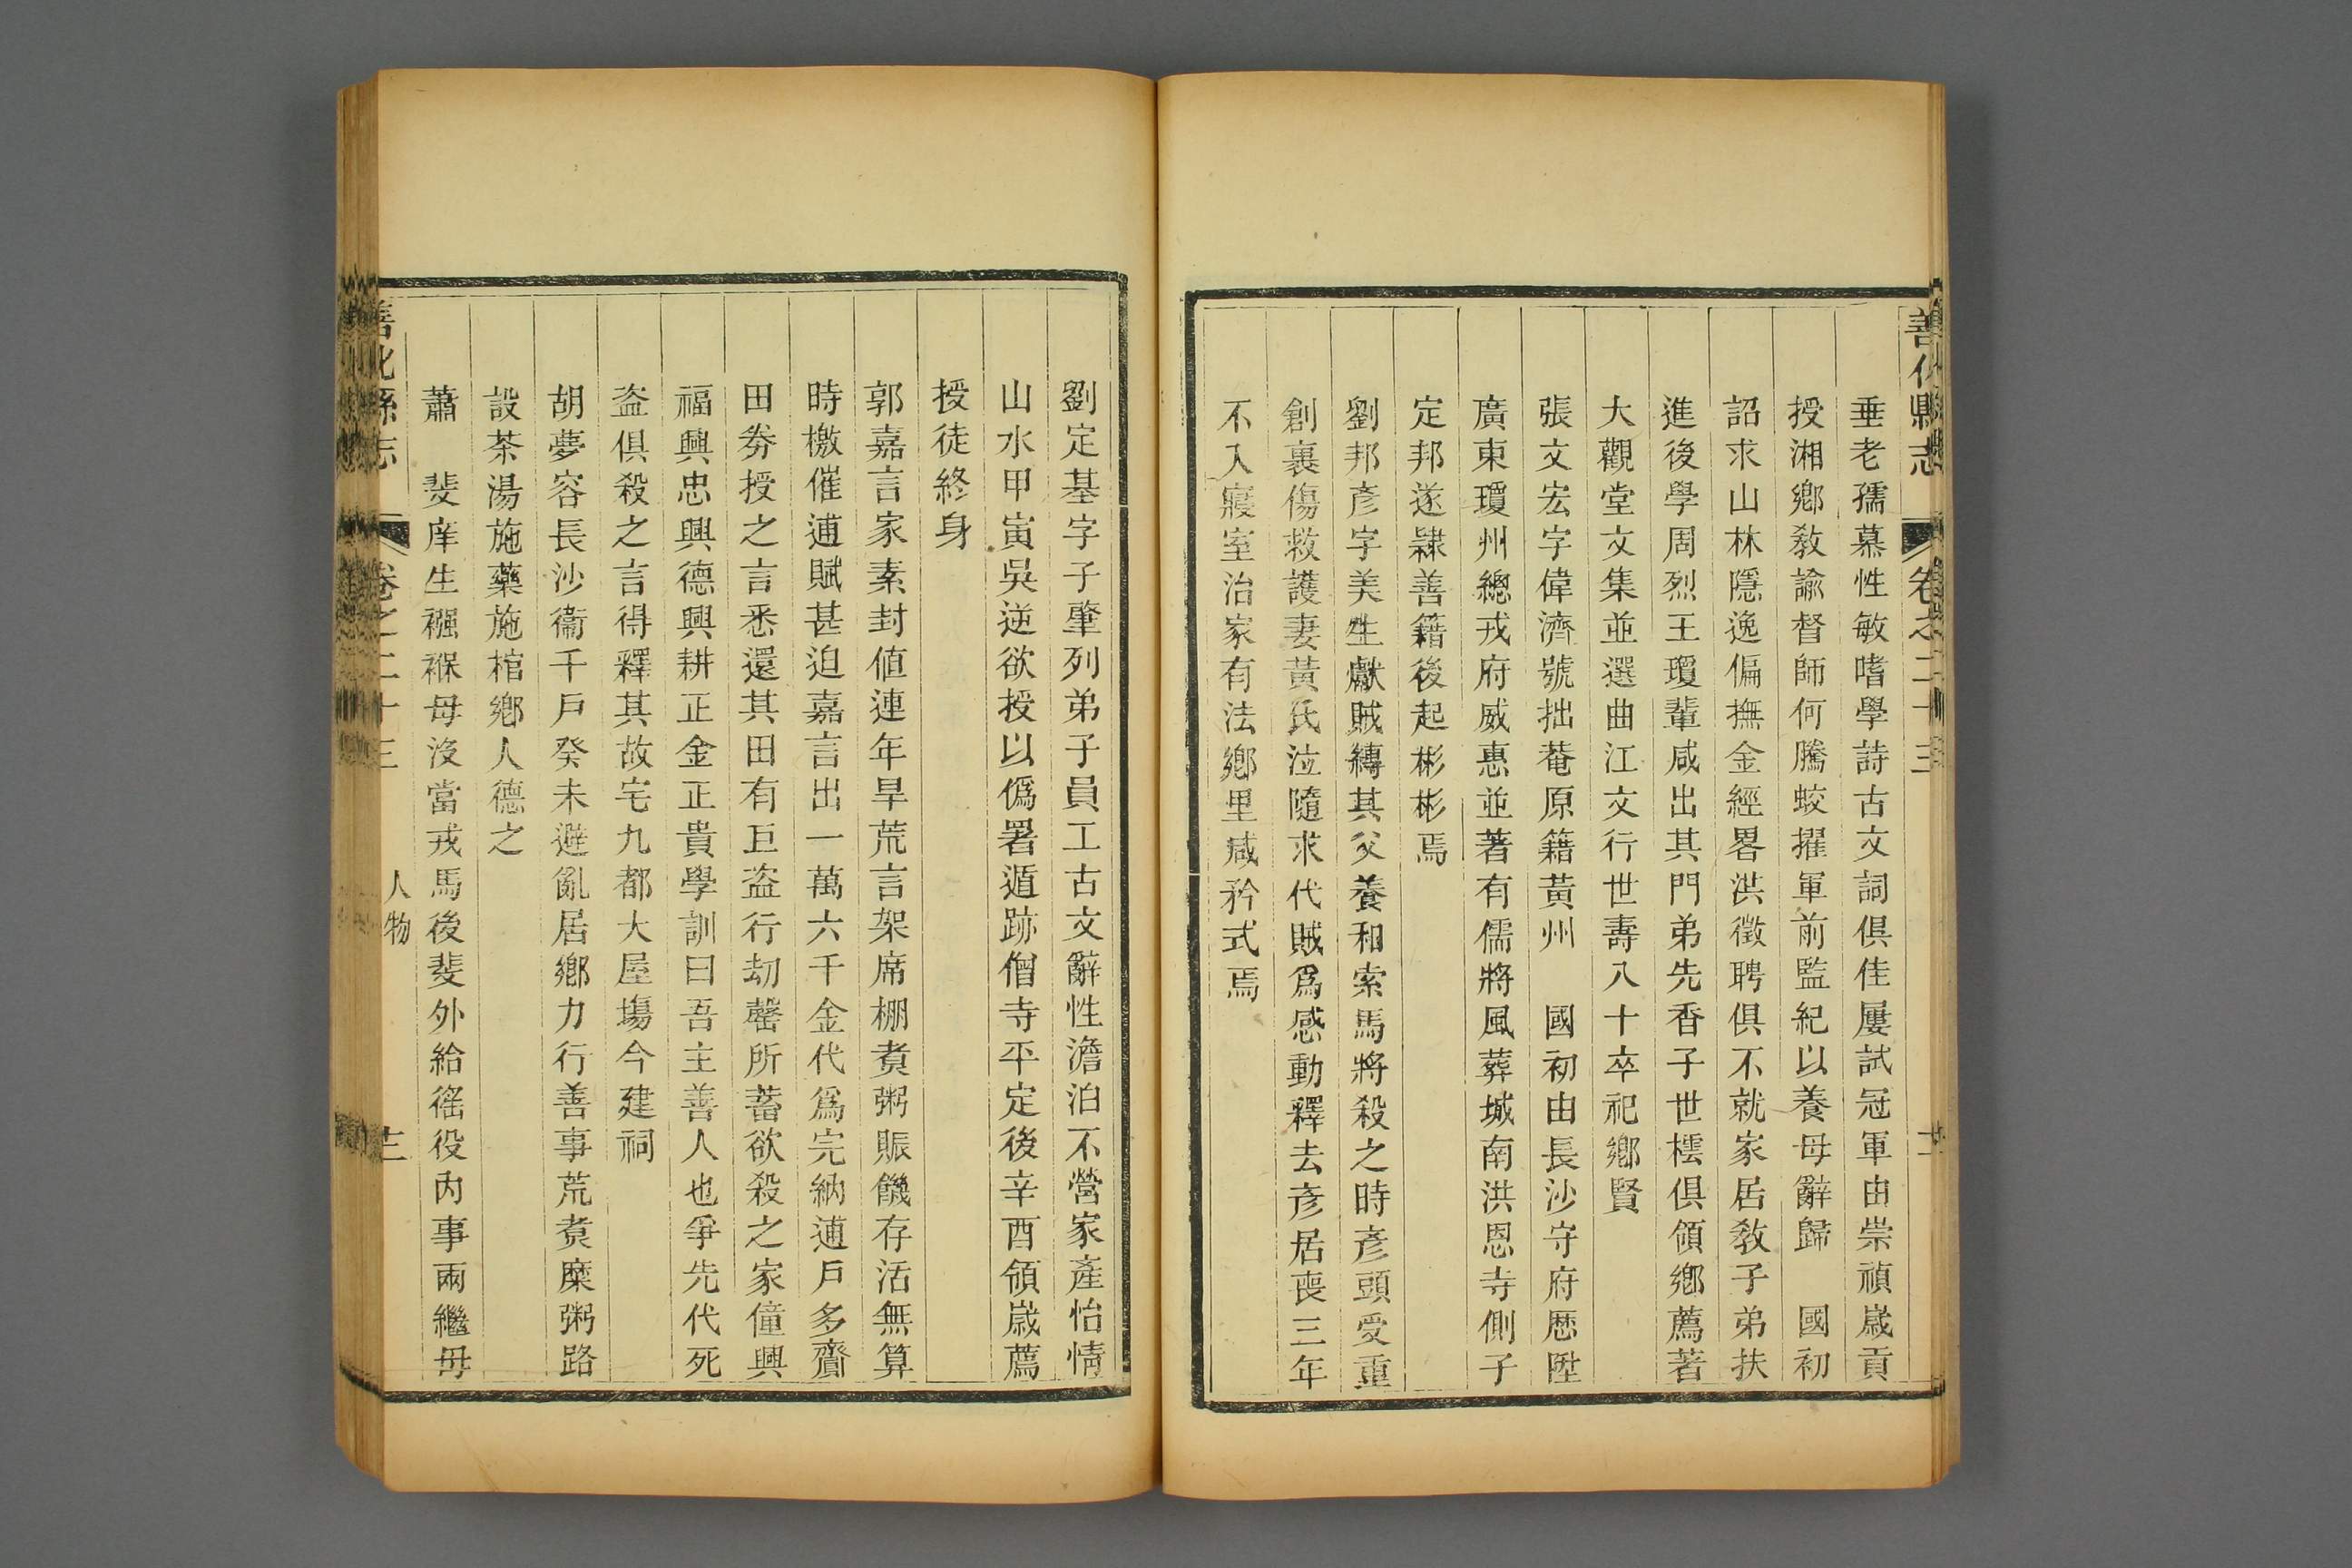 善化縣志 卷之二十三
垂老孺慕性敏嗜學詩古文詞俱佳屢試冠軍由崇禎歲貢
授湘鄉教諭督師何騰蛟擢軍前監紀以養母辭歸　國初
詔求山林隱逸偏撫金經畧洪徵聘俱不就家居教子弟扶
進後學周烈王瓊輩咸出其門弟先香子世橒俱領鄉薦著
大觀堂文集並選曲江文行世壽八十卒祀鄉賢
張文宏字偉濟號拙菴原籍黃州　國初由長沙守府歷陞
廣東瓊州總戎府威惠並著有儒將風葬城南洪恩寺側子
定邦遂隸善籍後起彬彬焉
劉邦彥字美生獻賊縛其父養和索馬將殺之時彥頭受重
創裹傷救護妻黃氏泣隨求代賊爲感動釋去彥居喪三年
不入寢室治家有法鄉里咸矜式焉
劉定基字子肇列弟子員工古文辭性澹泊不營家產怡情
山水甲寅吳逆欲授以僞署遁跡僧寺平定後辛酉領歲薦
授徒終身
郭嘉言家素封值連年旱荒言架席棚煑粥賑饑存活無算
時檄催逋賦甚迫嘉言出一萬六千金代爲完納逋戶多齎
田劵授之言悉還其田有巨盜行刼罄所蓄欲殺之家僮興
福興忠興德興耕正金正貴學訓曰吾主善人也爭先代死
盜俱殺之言得釋其故宅九都大屋塲今建祠
胡夢容長沙衞千戶癸未避亂居鄉力行善事荒煑糜粥路
設茶湯施藥施棺鄉人德之
蕭　斐庠生襁褓母沒當戎馬後斐外給徭役內事兩繼母
善化縣志 卷之二十三 人物 十二